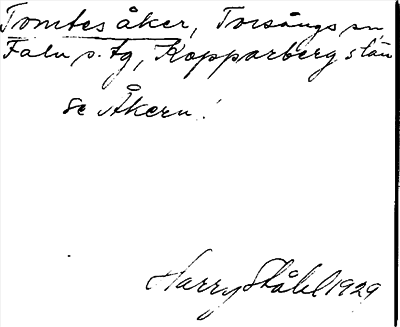 Tomtes åker, Torsångs sn,
Falu s. tg, Kopparbergs län
se Åkern!
Harry Ståhl 1929